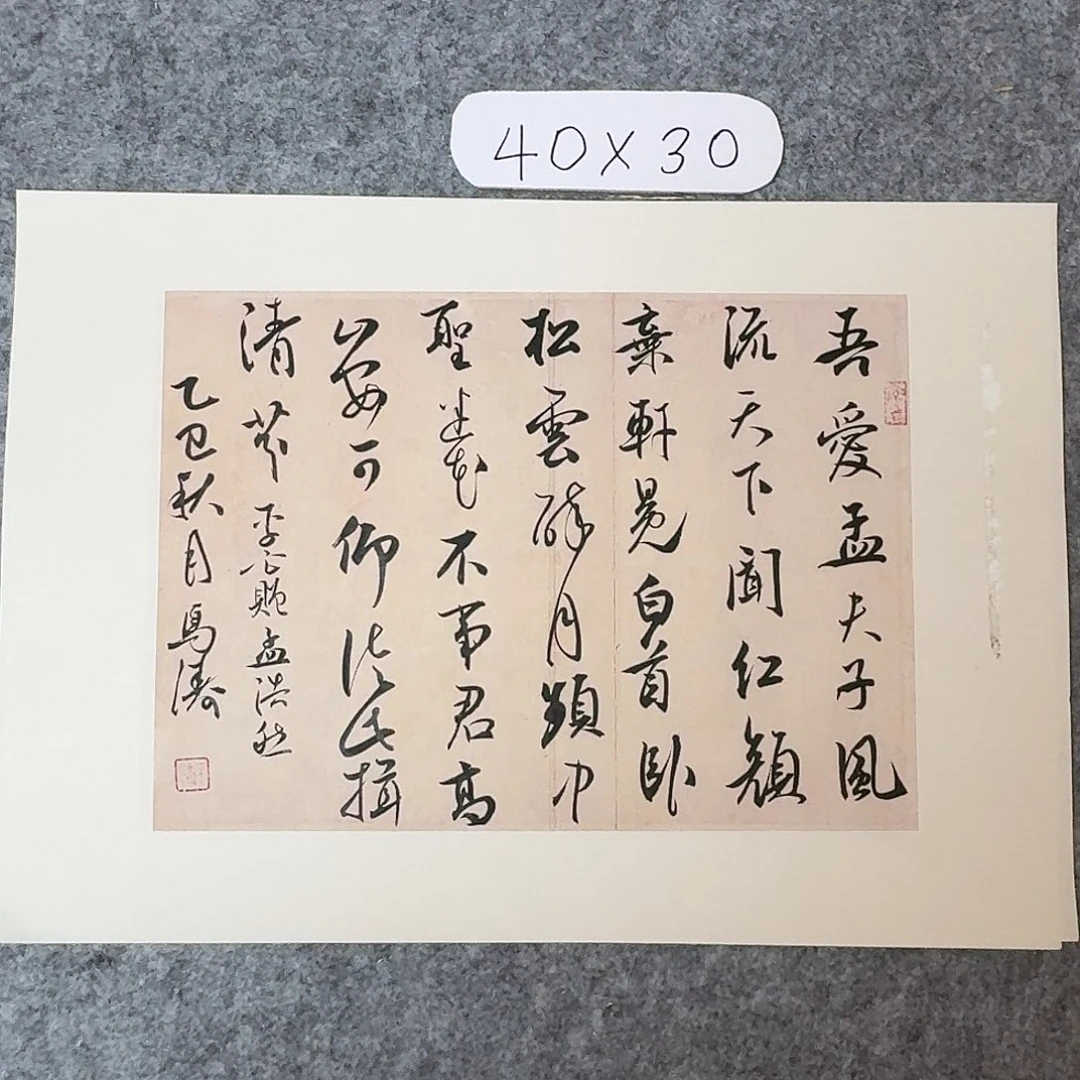 40X30
吾愛孟夫子風
流天下聞红顏
棄軒冕白首臥
松雲醉月頻中
聖迷花不事君高
山安可仰從此揖
清芬 李白贈孟浩然
乙巳秋月馬濤